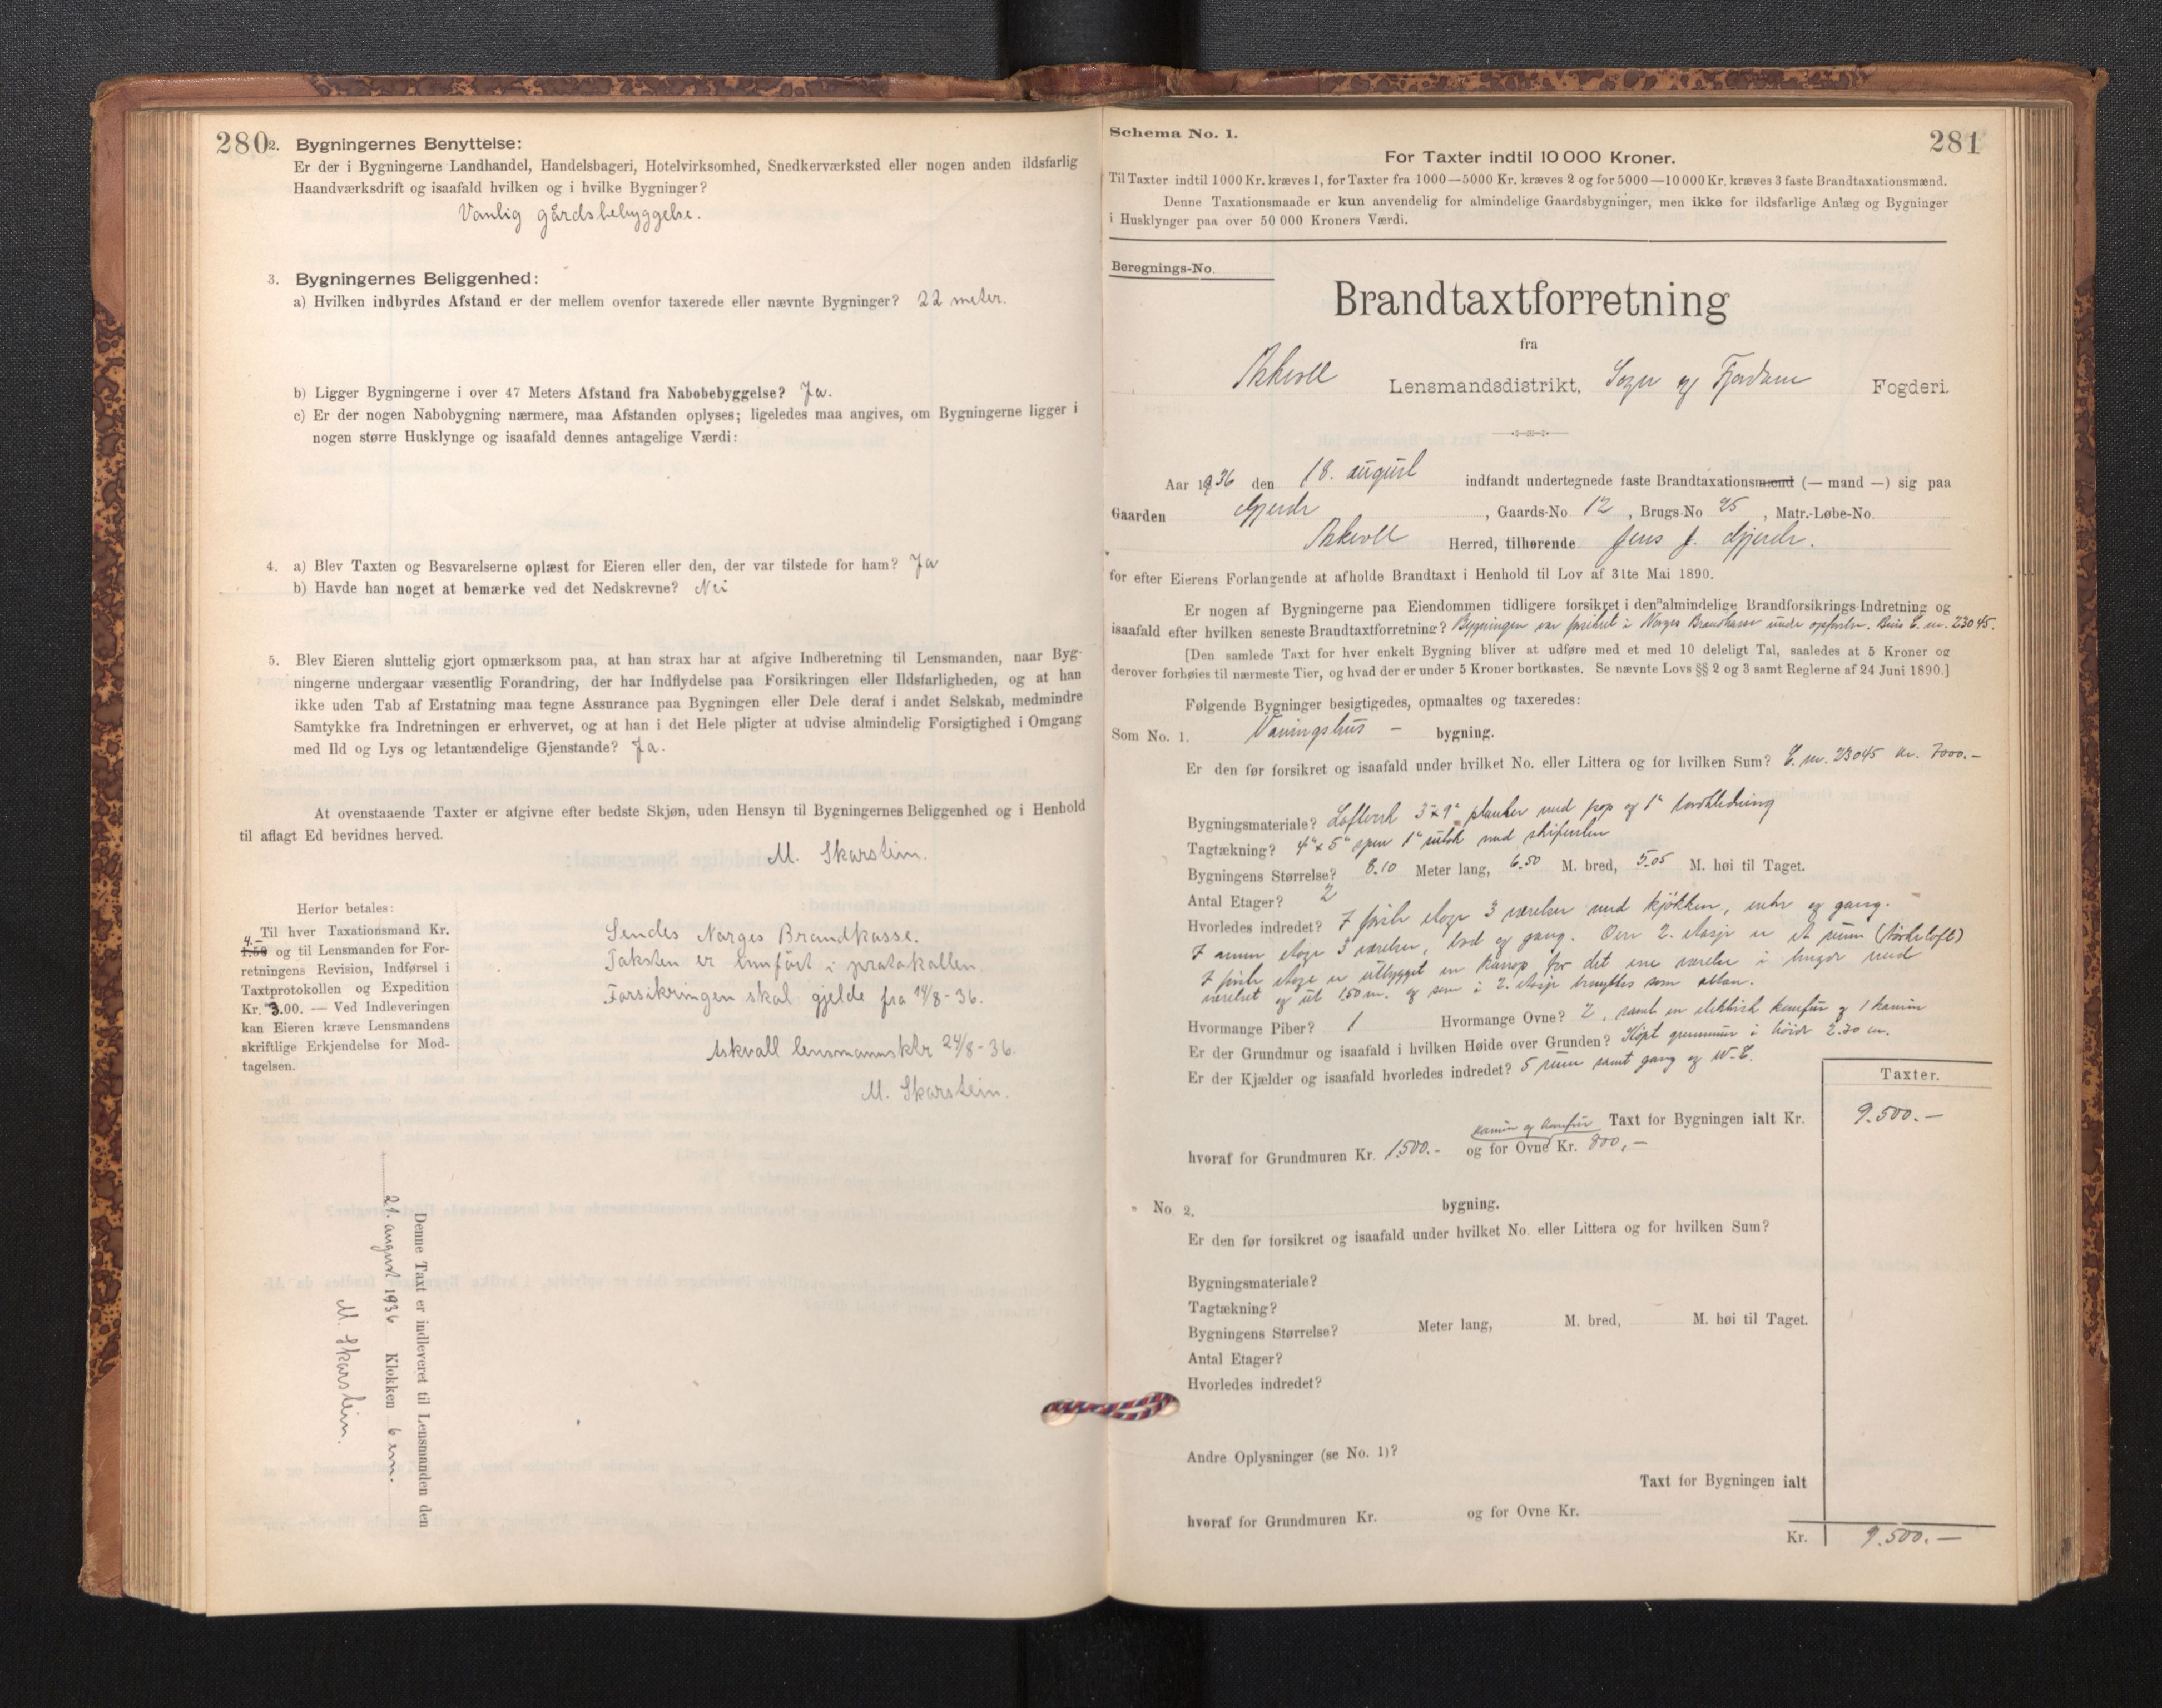 280
2. Bygningernes Benyttelse:
Er der i Bygningerne Landhandel, Handelsbageri, Hotelvirksomhed, Snedkerværksted eller nogen anden ildsfarlig
Haandværksdrift og isaafald hvilken og i hvilke Bygninger?
Vanlig gårdsbebyggelse.
3. Bygningernes Beliggenhed:
a) Hvilken indbyrdes Afstand er der mellem ovenfor taxerede eller nævnte Bygninger? 22 meter.
b) Ligger Bygningerne i over 47 Meters Afstand fra Nabobebyggelse? Ja.
c) Er der nogen Nabobygning nærmere, maa Afstanden oplyses; ligeledes maa angives, om Bygningerne ligger i
nogen større Husklynge og isaafald dennes antagelige Værdi:
4. a) Blev Taxten og Besvarelserne oplæst for Eieren eller den, der var tilstede for ham? Ja
b) Havde han noget at bemærke ved det Nedskrevne? Nei
5. Blev Eieren sluttelig gjort opmærksom paa, at han strax har at afgive Indberetning til Lensmanden, naar Byg-
ningerne undergaar væsentlig Forandring, der har Indflydelse paa Forsikringen eller Ildsfarligheden, og at han
ikke uden Tab af Erstatning maa tegne Assurance paa Bygningen eller Dele deraf i andet Selskab, medmindre
Samtykke fra Indretningen er erhvervet, og at han i det Hele pligter at udvise almindelig Forsigtighed i Omgang
med Ild og Lys og letantændelige Gjenstande? Ja.
At ovenstaaende Taxter er afgivne efter bedste Skjøn, uden Hensyn til Bygningernes Beliggenhed og i Henhold
til aflagt Ed bevidnes herved.
M. Skarstein.
Herfor betales:
Til hver Taxationsmand Kr.
4.-
1.50 og til Lensmanden for For-
retningens Revision, Indførsel i
Taxtprotokollen og Expedition
Kr. 3.00. — Ved Indleveringen
kan Eieren kræve Lensmandens
skriftlige Erkjendelse for Mod-
tagelsen.
Sendes Norges Brandkasse.
Taksten er innført i protokollen.
Forsikringen skal gjelde fra 14/8-36.
Askvoll lensmannsktr 24/8-36.
M. Skarstein.
Denne Taxt er indleveret til Lensmanden den
21. august 1936 Klokken 6 em.
M. Skarstein.
Schema No. 1.
281
For Taxter indtil 10 000 Kroner.
Til Taxter indtil 1000 Kr. kræves 1, for Taxter fra 1000—5000 Kr. kræves 2 og for 5000—10 000 Kr. kræves 3 faste Brandtaxationsmænd.
Denne Taxationsmaade er kun anvendelig for almindelige Gaardsbygninger, men ikke for ildsfarlige Anlæg og Bygninger
i Husklynger paa over 50 000 Kroners Værdi.
Beregnings-No.
Brandtaxtforretning
fra
Askvoll Lensmandsdistrikt, Sogn og Fjordane Fogderi.
Aar 1936 den 18. august indfandt undertegnede faste Brandtaxationsmænd (— mand —) sig paa
Gaarden Gjerde, Gaards-No. 12, Brugs-No 25, Matr.-Løbe-No.
Askvoll Herred, tilhørende Jens J. Gjerde.
for efter Eierens Forlangende at afholde Brandtaxt i Henhold til Lov af 31te Mai 1890.
Er nogen af Bygningerne paa Eiendommen tidligere forsikret i den almindelige Brandforsikrings-Indretning og
isaafald efter hvilken seneste Brandtaxtforretning? Bygningen var forsikret i Norges Brandkasse under opførelse. Bevis C. nr. 23045.
[Den samlede Taxt for hver enkelt Bygning bliver at udføre med et med 10 deleligt Tal, saaledes at 5 Kroner og
derover forhøies til nærmeste Tier, og hvad der er under 5 Kroner bortkastes. Se nævnte Lovs §§ 2 og 3 samt Reglerne af 24 Juni 1890.]
Følgende Bygninger besigtigedes, opmaaltes og taxeredes:
Som No. 1. Vaningshus - bygning.
Er den før forsikret og isaafald under hvilket No. eller Littera og for hvilken Sum? C. nr. 23045 kr. 7000.-
Bygningsmateriale? Lafteverk 3"x9" planker med pap og 1" bordkledning
Tagtækning? 4"x5" sper 1" uttak med skifertekn
Bygningens Størrelse? 8.10 Meter lang, 6.50 M. bred, 5.05 M. høi til Taget.
Antal Etager? 2
Hvorledes indredet? I første etage 3 værelser med kjøkken, entre og gang.
I annen etage 3 værelser, bad og gang. Over 2. etasje er et rum (tørkeloft)
I første etage er utbygget en karnap for det ene værelse i lengde med
værelset og ut 1,50 m. og som i 2. etasje benyttes som altan.
Hvormange Piber? 1 Hvormange Ovne? 2, samt en elektrisk komfur og 1 kamin
Er der Grundmur og isaafald i hvilken Høide over Grunden? Støpt grunnmur i høide 2.30 m.
Er der Kjælder og isaafald hvorledes indredet? 5 rum samt gang og W.C.
Taxter.
Taxt for Bygningen ialt Kr. 9.500.—
kamin og komfur
hvoraf for Grundmuren Kr. 1500.- og for Ovne Kr. 800,—
" No. 2. bygning.
Er den før forsikret og isaafald under hvilket No. eller Littera og for hvilken Sum?
Bygningsmateriale?
Tagtækning?
Bygningens Størrelse? Meter lang, M. bred, M. høi til Taget.
Antal Etager?
Hvorledes indredet?
Andre Oplysninger (se No. 1)?
Taxt for Bygningen ialt
hvoraf for Grundmuren Kr. og for Ovne Kr.
Kr. 9.500.—